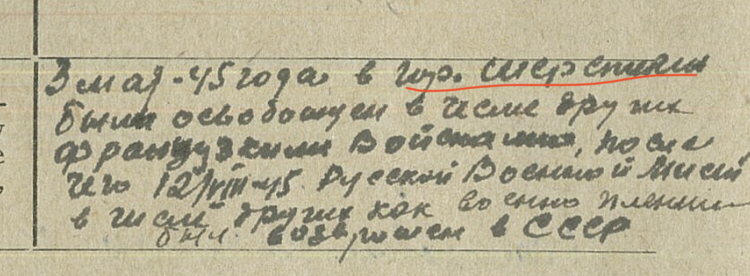 3 мая-45 года в гор.
был освобожден в числе других
французскими войсками, после
чего 12/VIII-45 Русской Военной Мисси
в числе других как военно пленный
был возвращен в СССР